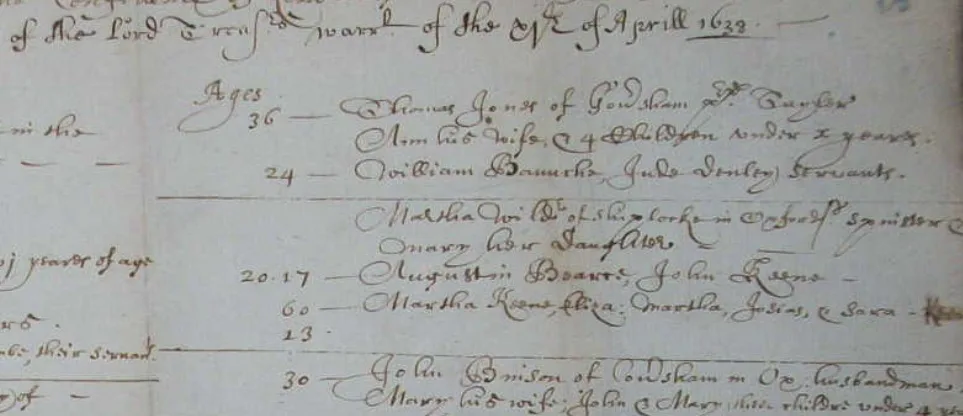 of the Lord Treasrs warrt. of the xjth of Aprill 1638.
Ages
36 — Thomas Jones of Gowsham Tayler
in the
Ann his wife, & 4 Children under x yeares.
24 — William Baunche, Jude Donley, servants.
Martha Wilder of Shiplocke in Oxfordsr spinster &
Mary her daughter
yeares of age
20. 17 — Augustin Bearce, John Keene —
60 — Martha Keene, Eliza: Martha, Josias, & Sara -
13.
their servant.
30 — John Binson of Cowsham in Ox. husbandman
of —
Mary his wife: John & Mary, their childre under 4 ye